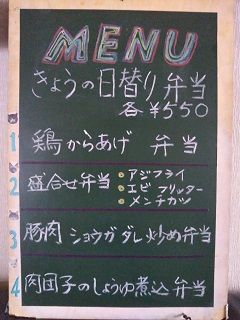 MENU
きょうの日替り弁当
各¥550
1 鶏からあげ 弁当
2 盛合せ弁当 ・アジフライ
・エビフリッター
・メンチカツ
3 豚肉ショウガダレ炒め弁当
4 肉団子のしょうゆ煮込弁当